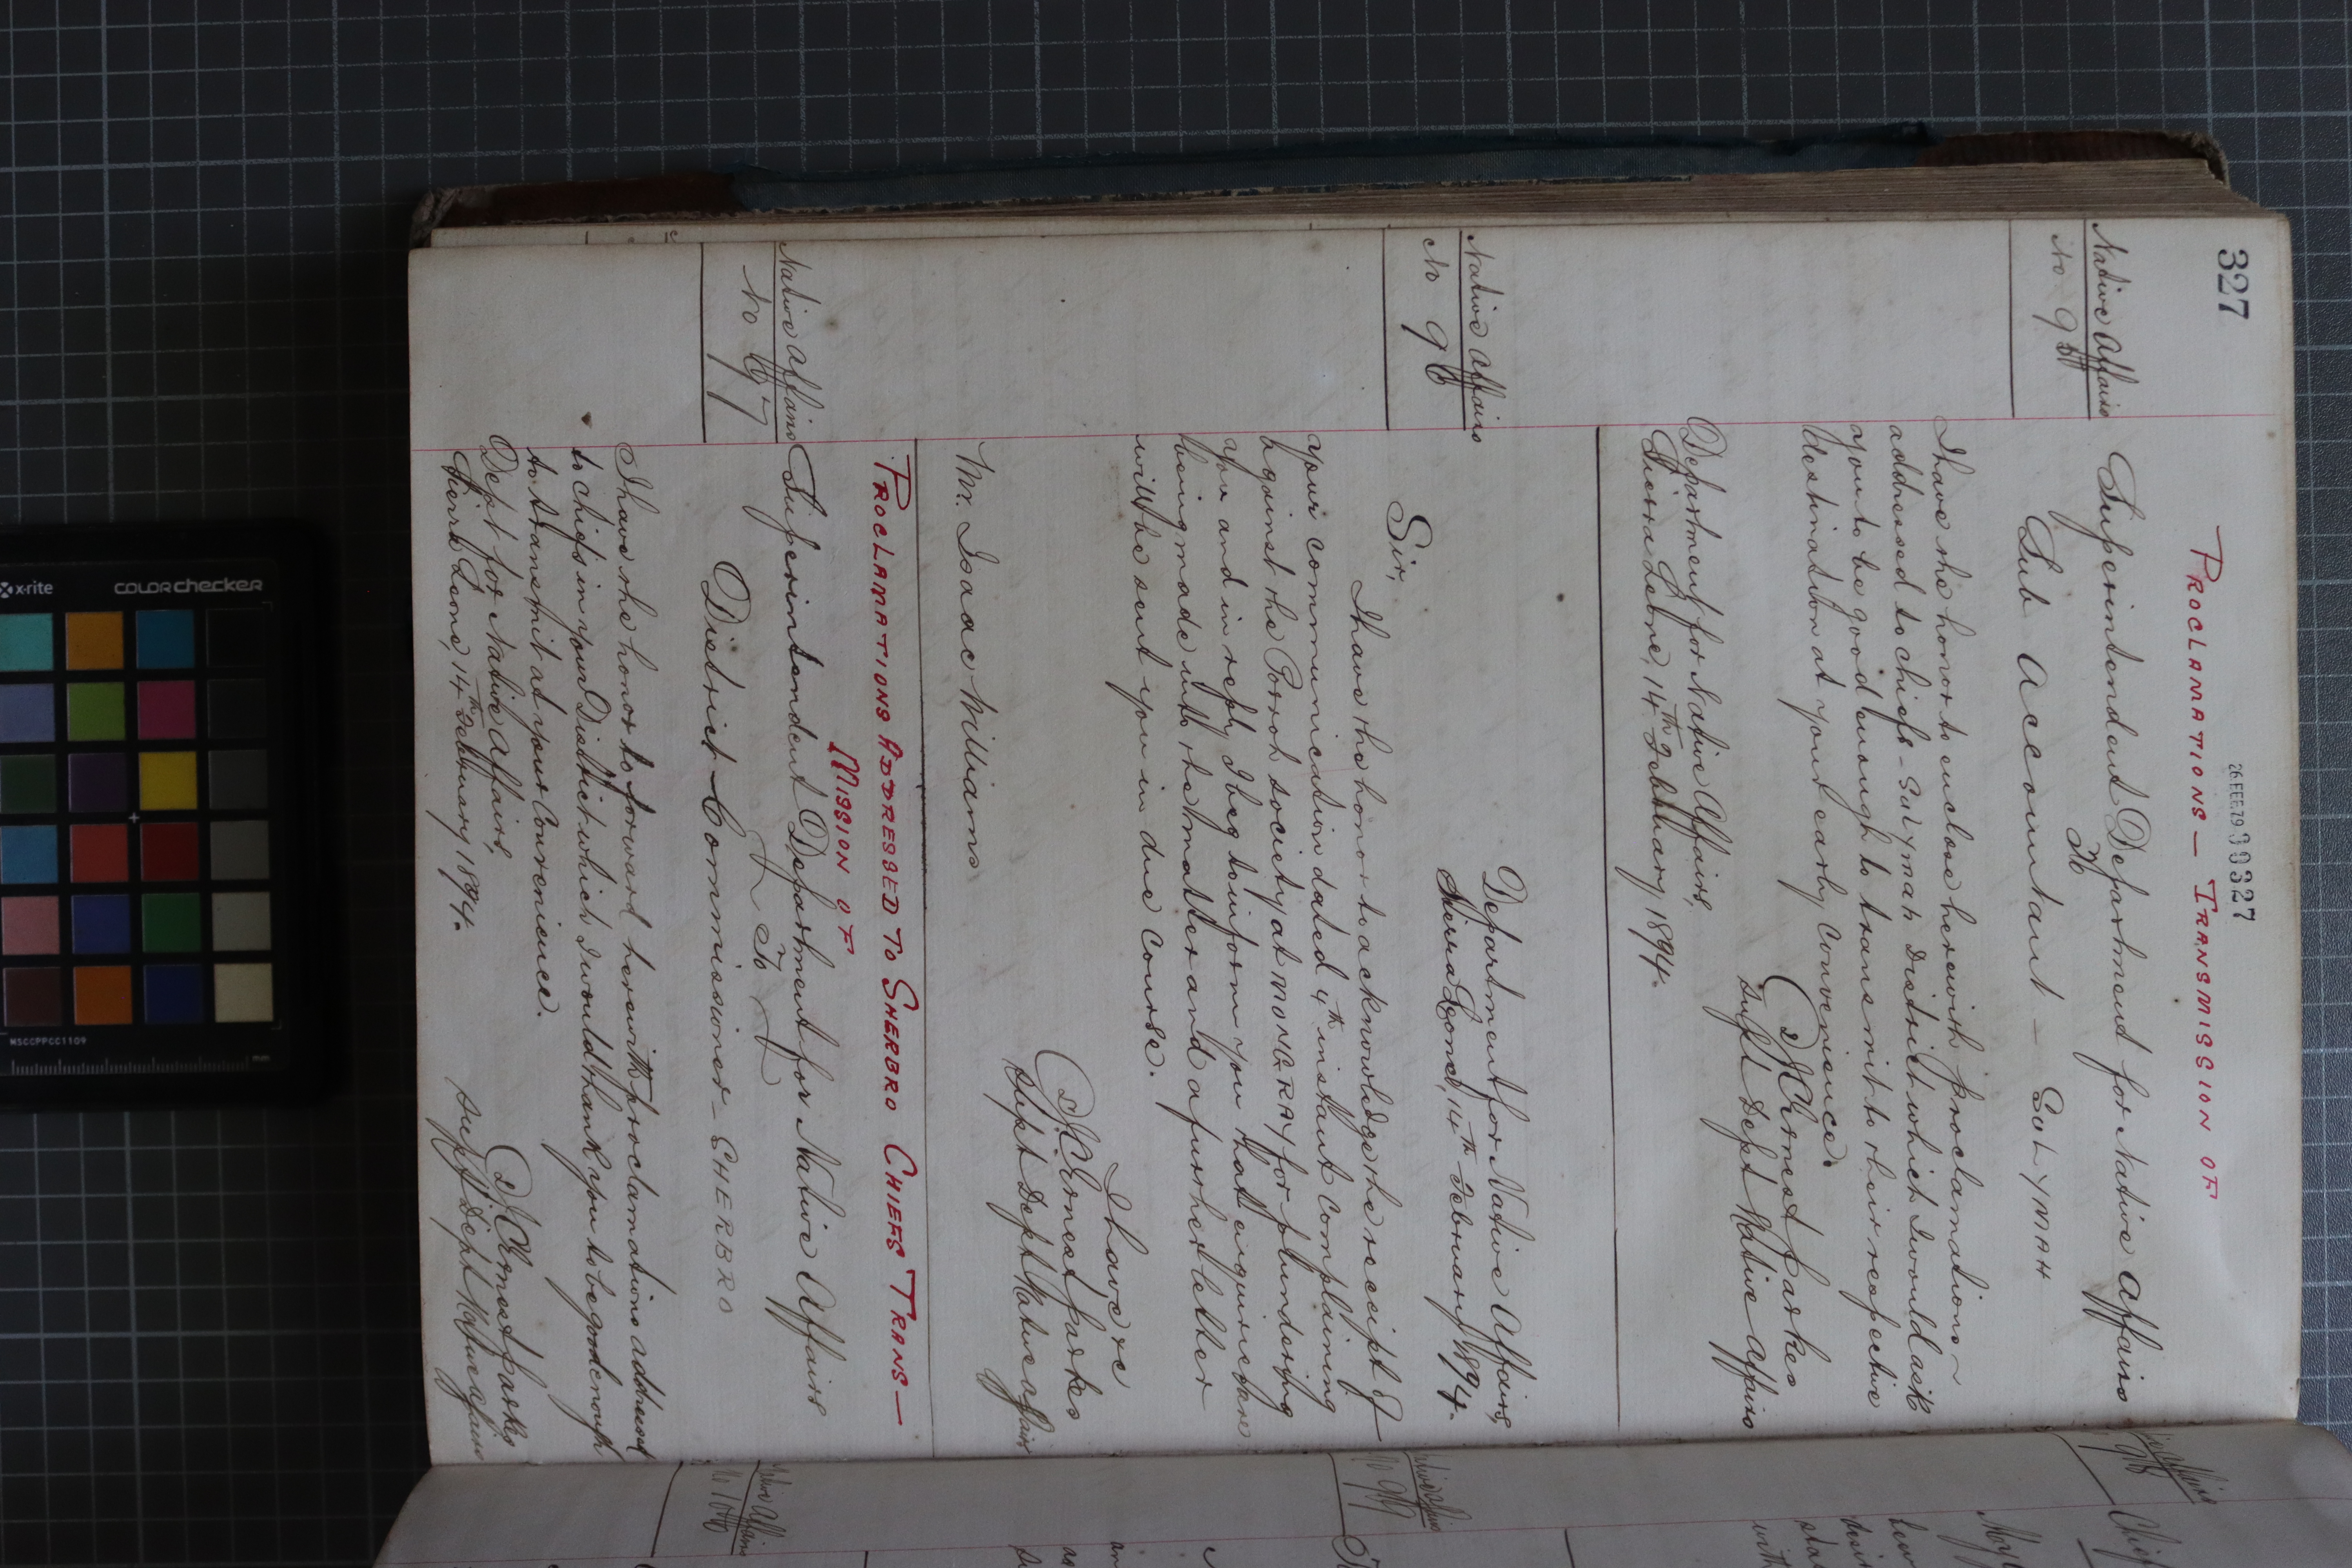 327
26 FEB 79 00327
PROCLAMATIONS — TRANSMISSION OF
Native Affairs
No 95
Superintendent Department for Native Affairs
To
Sub Accountant — SULYMAH
I have the honor to enclose herewith proclamations
addressed to chiefs - Sulymah District which I would ask
you to be good enough to transmit to their respective
destination at your early convenience.
J C Ernest Parkes
Supt Dept Native Affairs
Department for Native Affairs,
Sierra Leone, 14th February 1894.
Native Affairs
No 96
Department for Native Affairs,
Sierra Leone, 14th February 1894.
Sir,
I have the honor to acknowledge the receipt of
your communication dated 4th instant complaining
against the Porroh society at MONGRAY for plundering
you and in reply I beg to inform you that enquiries are
being made into the matter and a further letter
will be sent you in due course.
I have &c
J C Ernest Parkes
Supt Dept Native Affairs
Mr. Isaac Williams
PROCLAMATIONS ADDRESSED TO SHERBRO CHIEFS TRANS—
MISSION OF
Native Affairs
No 97
Superintendent Department for Native Affairs
To
District Commissioner — SHERBRO
I have the honor to forward herewith proclamations addressed
to chiefs in your District which I would thank you to be good enough
to transmit at your convenience.
Dept for Native Affairs,
Sierra Leone, 14th February 1894.
J C Ernest Parkes
Supt Dept Native Affairs
x-rite
COLORchecker
MSCCPPCC1109
mm